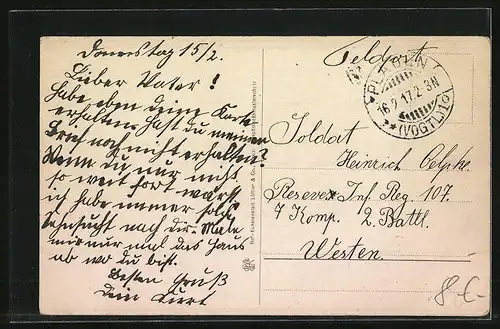 Donnerstag 15/2.
Lieber Vater!
Habe eben deine Karte
erhalten. Hast du meinen
Brief noch nicht erhalten?
Wenn du nur nicht
so weit fort wärst
ich habe immer solche
Sehnsucht nach dir. Male
mir nur mal das Haus
ab wo du bist.
Besten Gruß
dein Kurt
Feldpost
PLAUEN
16.2.17.2-3N
*(VOGTL.)1
Soldat
Heinrich Oelpke.
Reserve Inf. Reg. 107.
4 Komp. 2. Battl.
Westen.
8.-